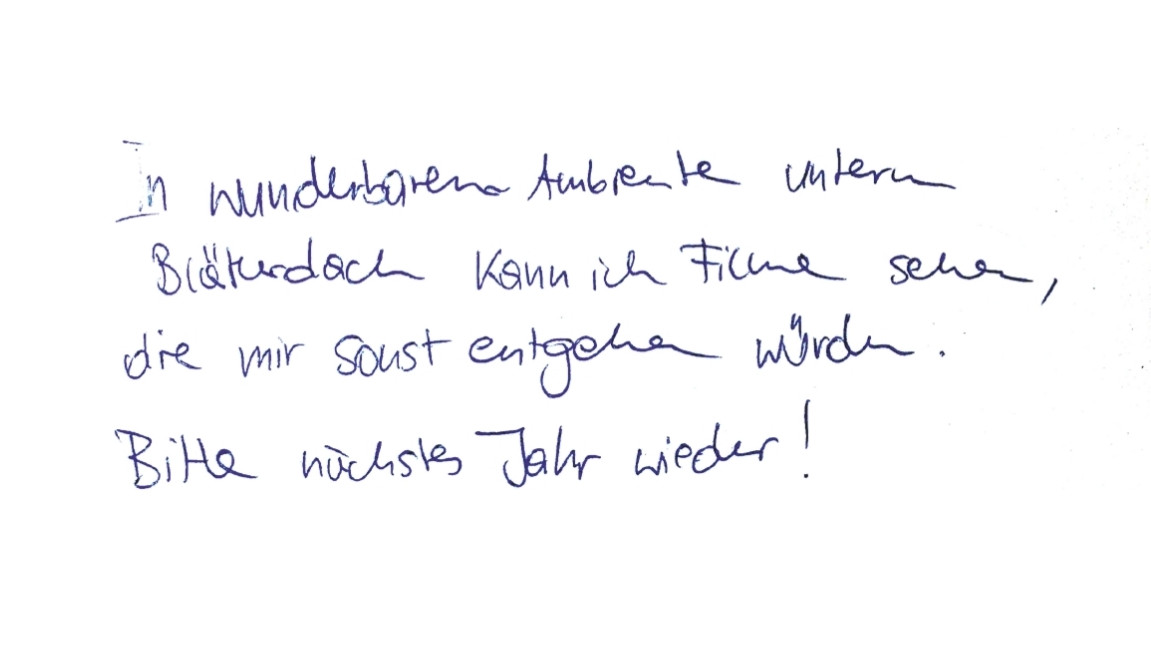 In wunderbarem Ambiente unterm
Blätterdach kann ich Filme sehen,
die mir sonst entgehen würden.
Bitte nächstes Jahr wieder!